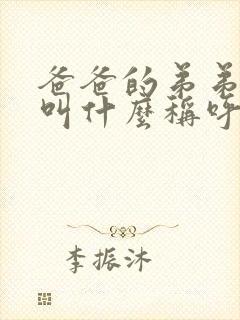 爸爸的弟弟
叫什麼稱呼
李振沐